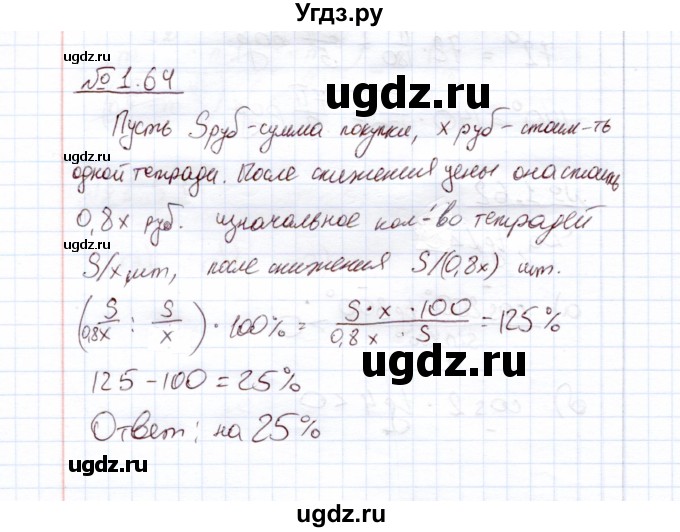 Угдз.ру
№ 1.64
Пусть S руб – сумма покупки, x руб – стоим-ть
одной тетради. После снижения цены она стоит
0,8x руб. изначальное кол-во тетрадей
S/x шт, после снижения S/(0,8x) шт.
(S/0,8x : S/x) · 100% = S·x·100/0,8x · S = 125%
125 – 100 = 25%
Ответ: на 25%
ugdz.ru
ugdz.ru
ugdz.ru
ugdz.ru
ugdz.ru
ugdz.ru
ugdz.ru
ugdz.ru
ugdz.ru
ugdz.ru
ugdz.ru